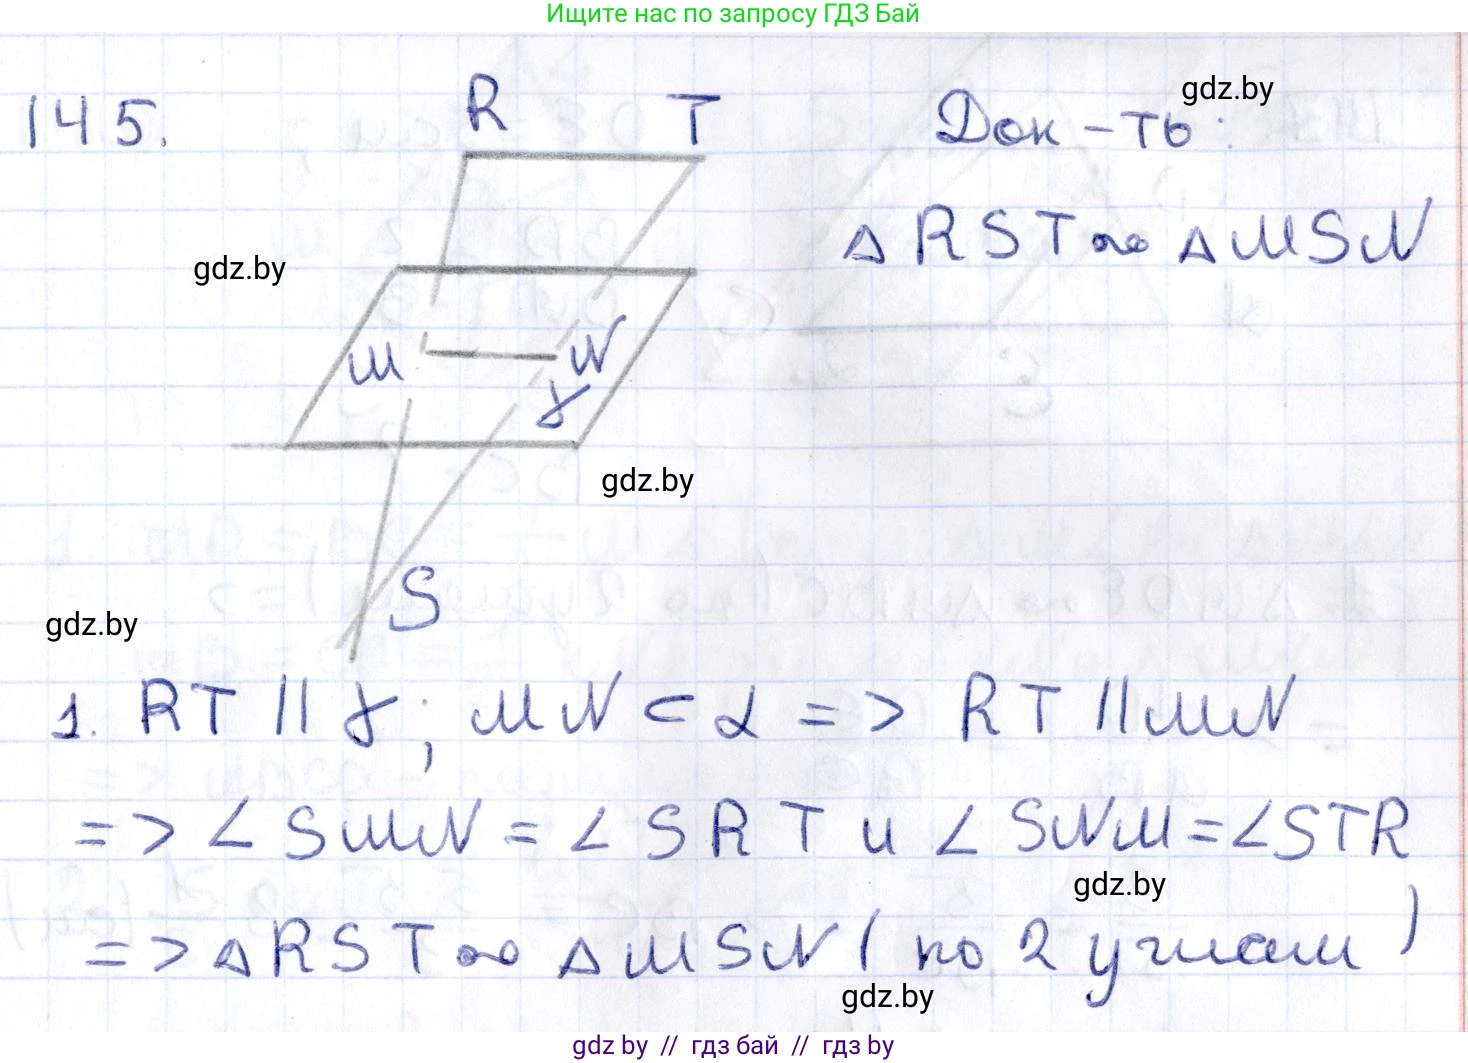 Ищите нас по запросу ГДЗ Бай
145.
R T
Док-ть:
gdz.by
△RST ∾ △MSN
gdz.by
M N
γ
gdz.by
S
gdz.by
1. RT || γ; MN ⊂ α => RT || MN
=> ∠SMN = ∠SRT и ∠SNM = ∠STR
gdz.by
=> △RST ∾ △MSN (по 2 углам)
gdz.by
gdz by // гдз бай // гдз by